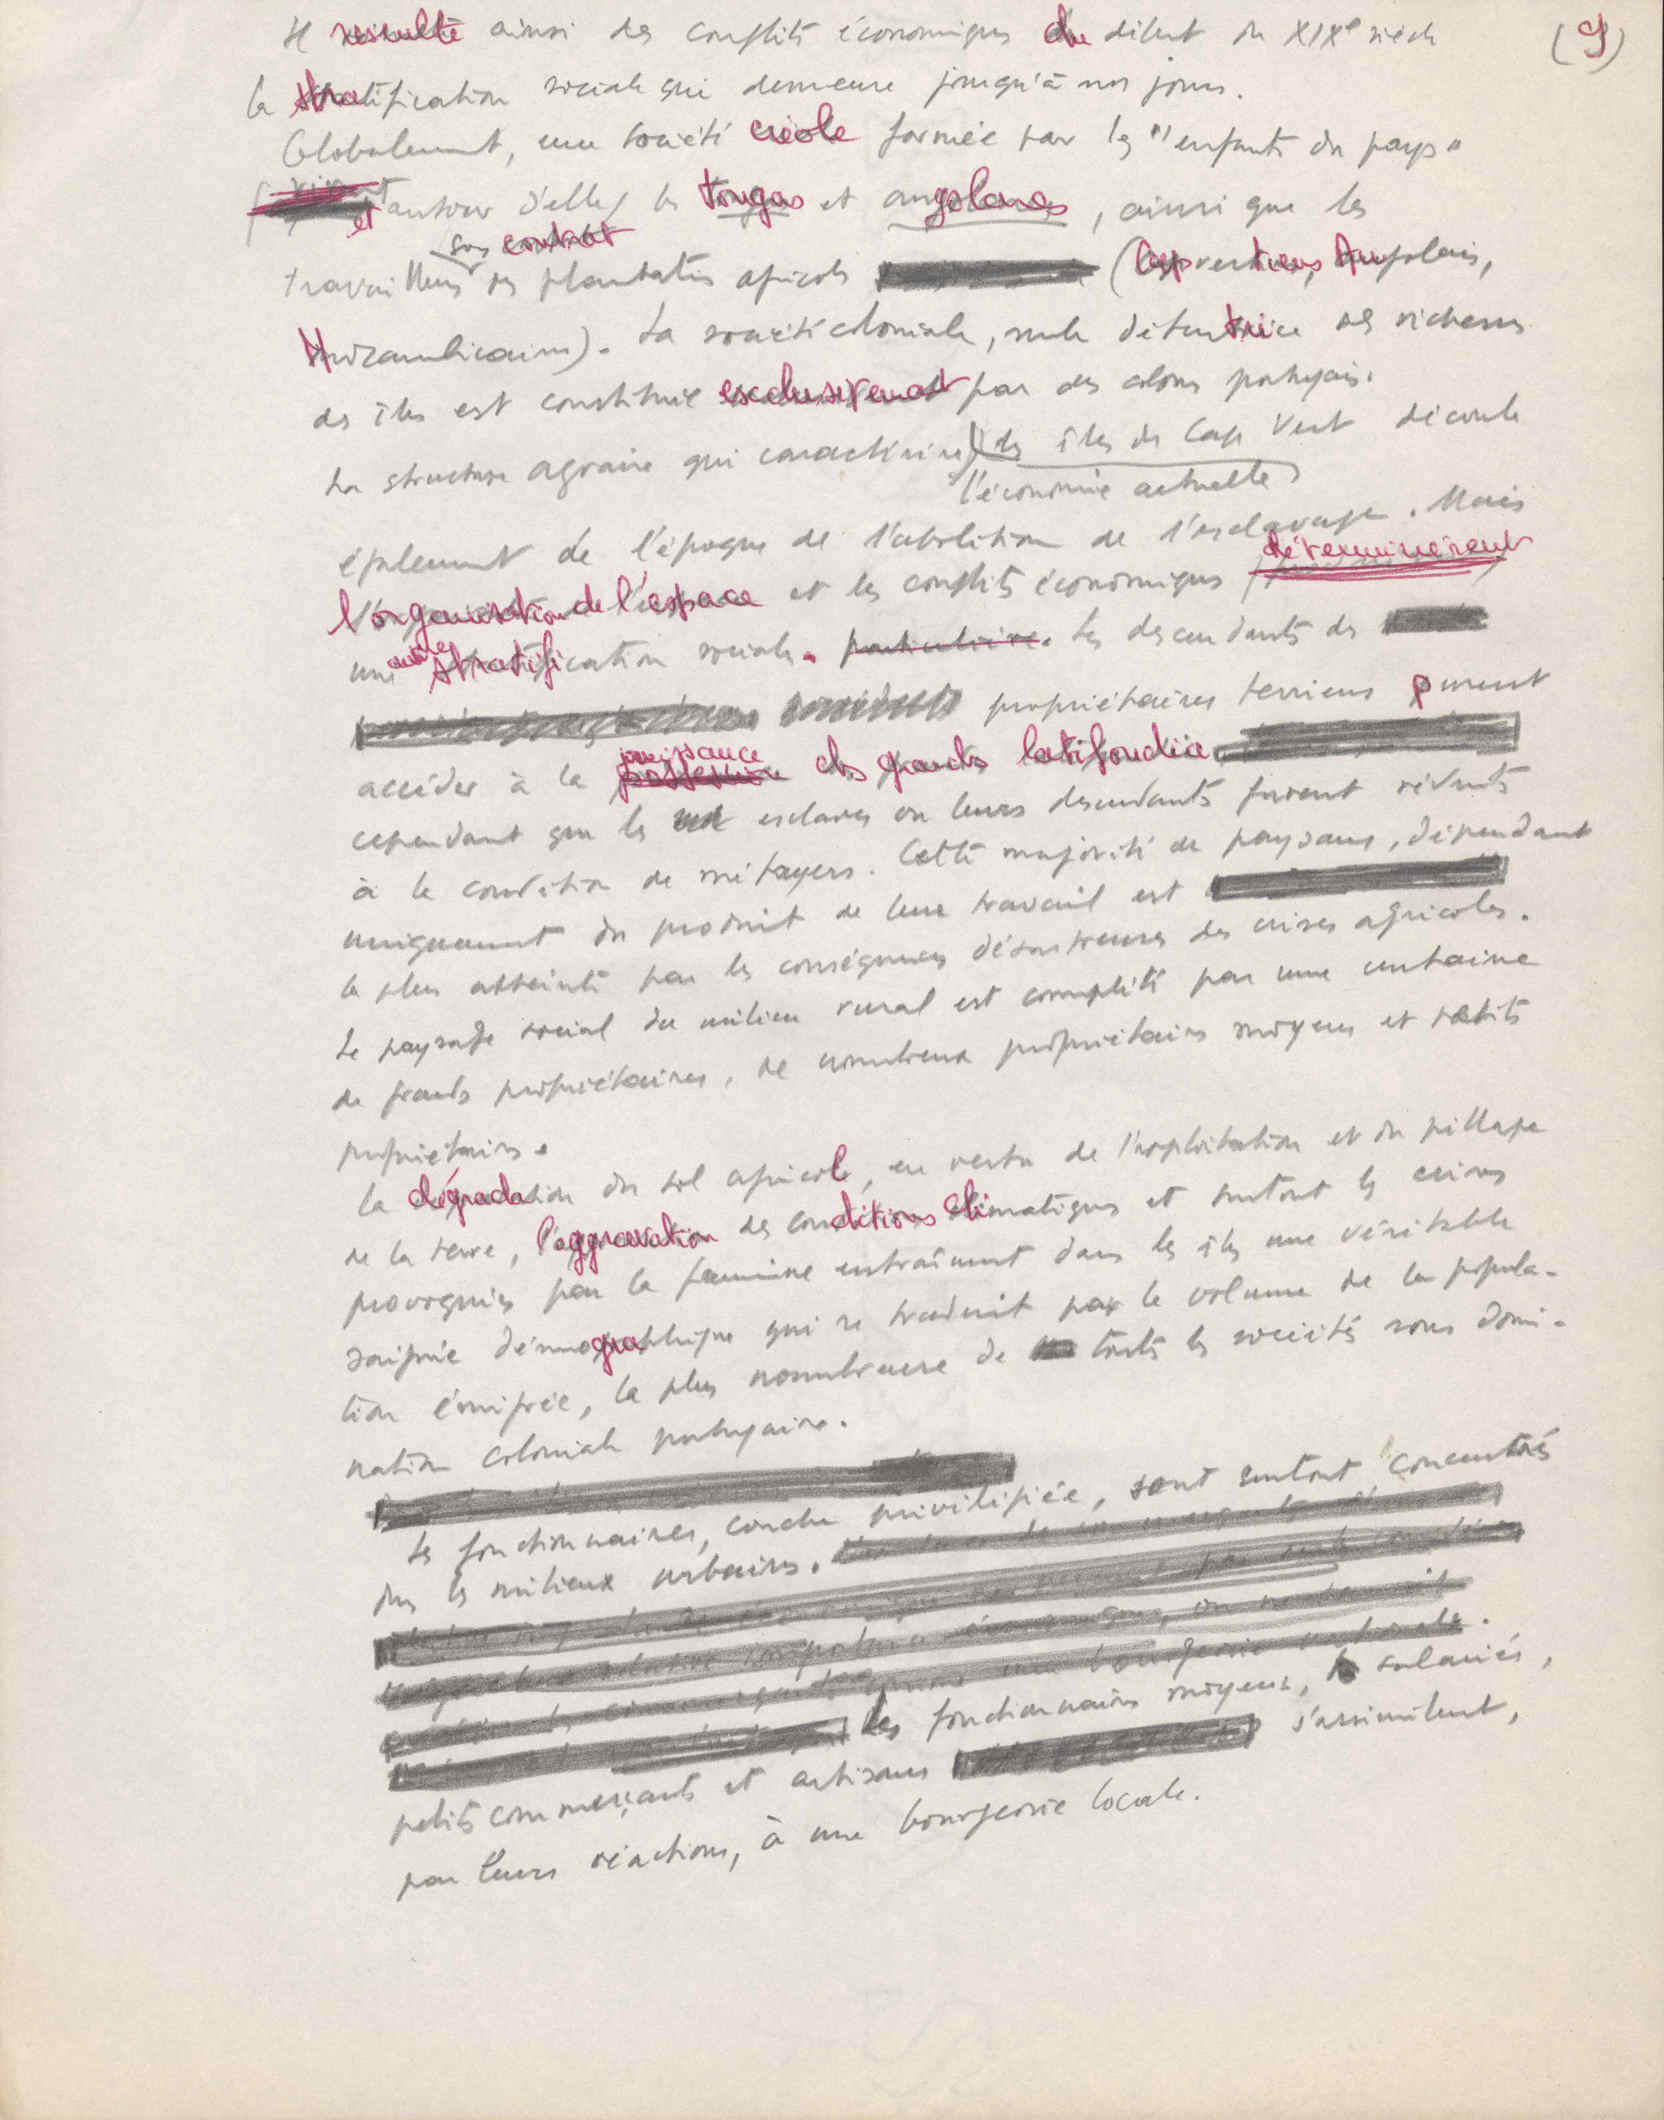 (9)
Il resulte ainsi des conflits économiques du début du XIXe siècle
la stratification sociale qui demeure jusqu'à nos jours.
Globalement, une société créole formée par les "enfants du pays"
et autour d'elle, les tongas et angolares, ainsi que les
sous contrat
travailleurs des plantations agricoles (Capverdiens, Angolais,
Mozambicains). La société coloniale, seule détentrice des richesses
des îles est constituée exclusivement par des colons portugais.
La structure agraire qui caractérise les îles du Cap Vert découle
l'économie actuelle
également de l'époque de l'abolition de l'esclavage. Mais
déterminèrent
l'organisation de l'espace et les conflits économiques
une autre stratification sociale. particulière. Les descendants des
propriétaires terriens purent
jouissance
accéder à la possession des grands latifundia
cependant que les esclaves ou leurs descendants furent réduits
à la condition de métayers. Cette majorité de paysans, dépendant
uniquement du produit de leur travail est
la plus atteinte par les conséquences désastreuses des crises agricoles.
Le paysage social du milieu rural est complété par une centaine
de grands propriétaires, de nombreux propriétaires moyens et petits
propriétaires.
La dégradation du sol agricole, en vertu de l'exploitation et du pillage
de la terre, l'aggravation des conditions climatiques et surtout les crises
provoquées par la famine entraînent dans les îles une véritable
saignée démographique qui se traduit par le volume de la popula-
tion émigrée, la plus nombreuse de toutes les sociétés sous domi-
nation coloniale portugaise.
Les fonctionnaires, couche privilégiée, sont surtout concentrés
dans les milieux urbains.
Les fonctionnaires moyens, salariés,
petits commerçants et artisans s'assimilent,
par leurs réactions, à une bourgeoisie locale.